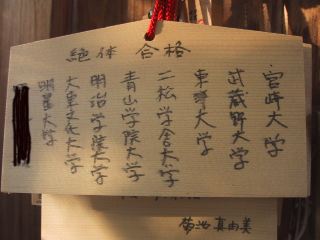 絶体合格
宮崎大学
武蔵野大学
東洋大学
二松学舎大学
青山学院大学
明治学院大学
大東文化大学
明星大学
菊池真由美